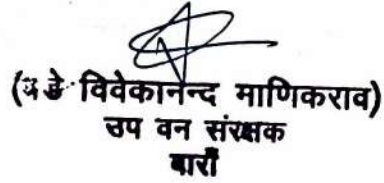 (वडे विवेकानन्द माणिकराव)
उप वन संरक्षक
बाराँ